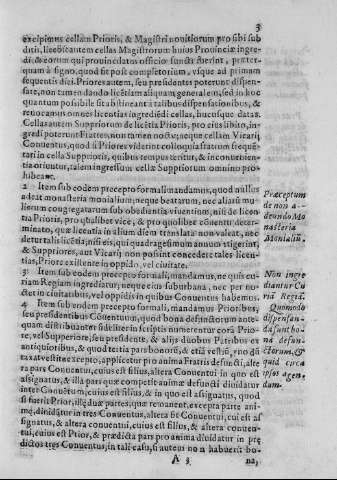 3
excipimus cellam Prioris, & Magistri nouitiorum pro sibi sub
ditis, licebit autem cellas Magistrorum huius Prouinciæ ingre-
di, & eorum qui prouincialatus officio functi fuerint, præter-
quam à signo, quod fit post completorium, vsque ad primam
sequentis diei. Priores autem, seu presidentes poterunt dispen-
sare, non tamen dando licetiam aliquam generalem, sed in hoc
quantum possibile sit abstineant à talibus dispensationibus, &
reuocamus omnes licentias ingrediēdi cellas, hucusque datas.
Cellas autem Suppriorum de licētia Prioris, pro eius libito, in-
gredi poterunt Fratres, non tamen noctu; neque cellam Vicarij
Conuentus, quod si Priores viderint colloquia fratrum frequē-
tari in cella Supprioris, quibus tempus teritur, & in
oriuntur, talem ingressum cellæ Supprioris omnino pro-
hibeāt.
2 Item sub eodem precepto formali mandamus, quod nullus
adeat monasteria monialium; neque beatarum, nec aliarū mu-
lierum congregatarum sub obedientia viuentium, nisi de licen
tia Prioris, pro qualibet vice, & pro quolibet cōuentu deter-
minato, quæ licentia in alium diem translata non valeat, nec
detur talis licētia, nisi eis, qui quadragesimum annum attigerint,
& Suppriores, aut Vicarij non possint concedere tales licen-
tias, Priore existente in oppido, vel ciuitate.
3 Item sub eodem precepto formali, mandamus, ne quis cu-
riam Regiam ingrediatur, neque eius suburbana, nec per no-
ctet in ciuitatibus, vel oppidis in quibus Conuentus habemus.
4 Item sub eodem precepto formali, mandamus Prioribus,
seu presidentibus Conuentuum, quod bona defunctorum ante-
quam distribuantur fideliter in scriptis numerentur corā Prio-
re, vel Suppriore, seu presidente, & alijs duobus Patribus ex
antiquioribus, & quod tertia pars bonorū, & etiā vestiū,
taxat vestite excepto, applicetur pro anima Fratris defuncti, alte
ra pars Conuentui, cuius est filius, altera Conuentui in quo est
assignatus, & illa pars quæ competit animæ defuncti diuidatur
inter Conuētum, cuius est filius, & in quo est assignatus, quod
si fuerit Prior, illę duæ partes, quæ remanent, excepta parte ani-
mę, diuidātur in tres Conuentus, altera sit Conuentui, cui est as
signatus, & altera conuentui, cuius est filius, & altera conuen-
tui, cuius est Prior, & prædicta pars pro anima diuidatur in prę
dictos tres Conuentus, in tali casu, si autem non habuerit bo-
A 3 na,
Præceptum
de non a-
deundo Mo
nasteria
Monialiū.
Non ingre
diantur Cu
riā Regiā.
Quomodo
dispensan-
da sunt bo-
na defun-
ctorum, &
quid circa
ipsos agen
dum.